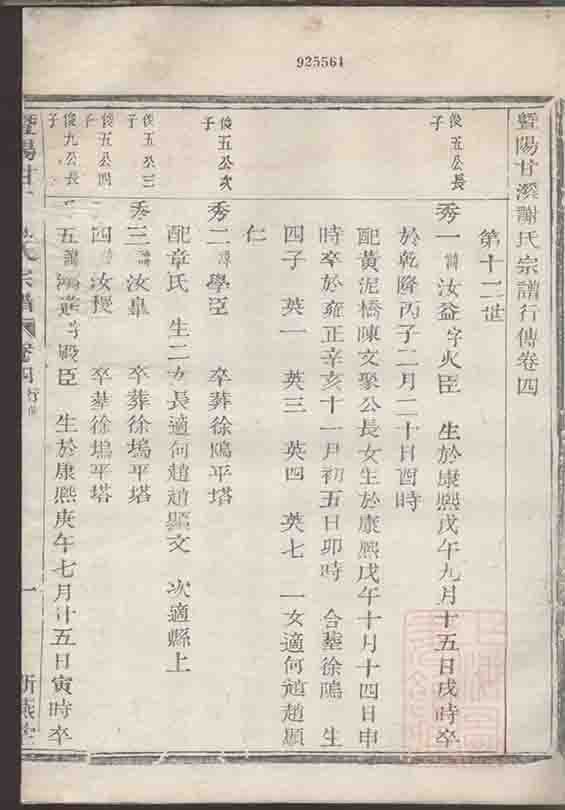 925561
暨陽甘溪謝氏宗譜行傳卷四
第十二世
俊五公長子
秀一 諱 汝益字火臣 生於康熙戊午九月十五日戌時卒
於乾隆丙子二月二十日酉時
配黃泥橋陳文聚公長女生於康熙戊午十月十四日申
時卒於雍正辛亥十一月初五日卯時 合墓徐塢 生
四子 英一 英三 英四 英七 一女適何趙趙顯
仁
俊五公次子
秀二 諱 學臣 卒葬徐塢平塔
配章氏 生二女長適何趙趙顯文 次適縣上
俊五公三子
秀三 諱 汝皐 卒葬徐塢平塔
俊五公四子
四 汝 卒葬徐塢平塔
俊九公長子
五 諱 鴻 字殿臣 生於康熙庚午七月廿五日寅時卒
暨陽甘 氏宗譜 卷四 行 一